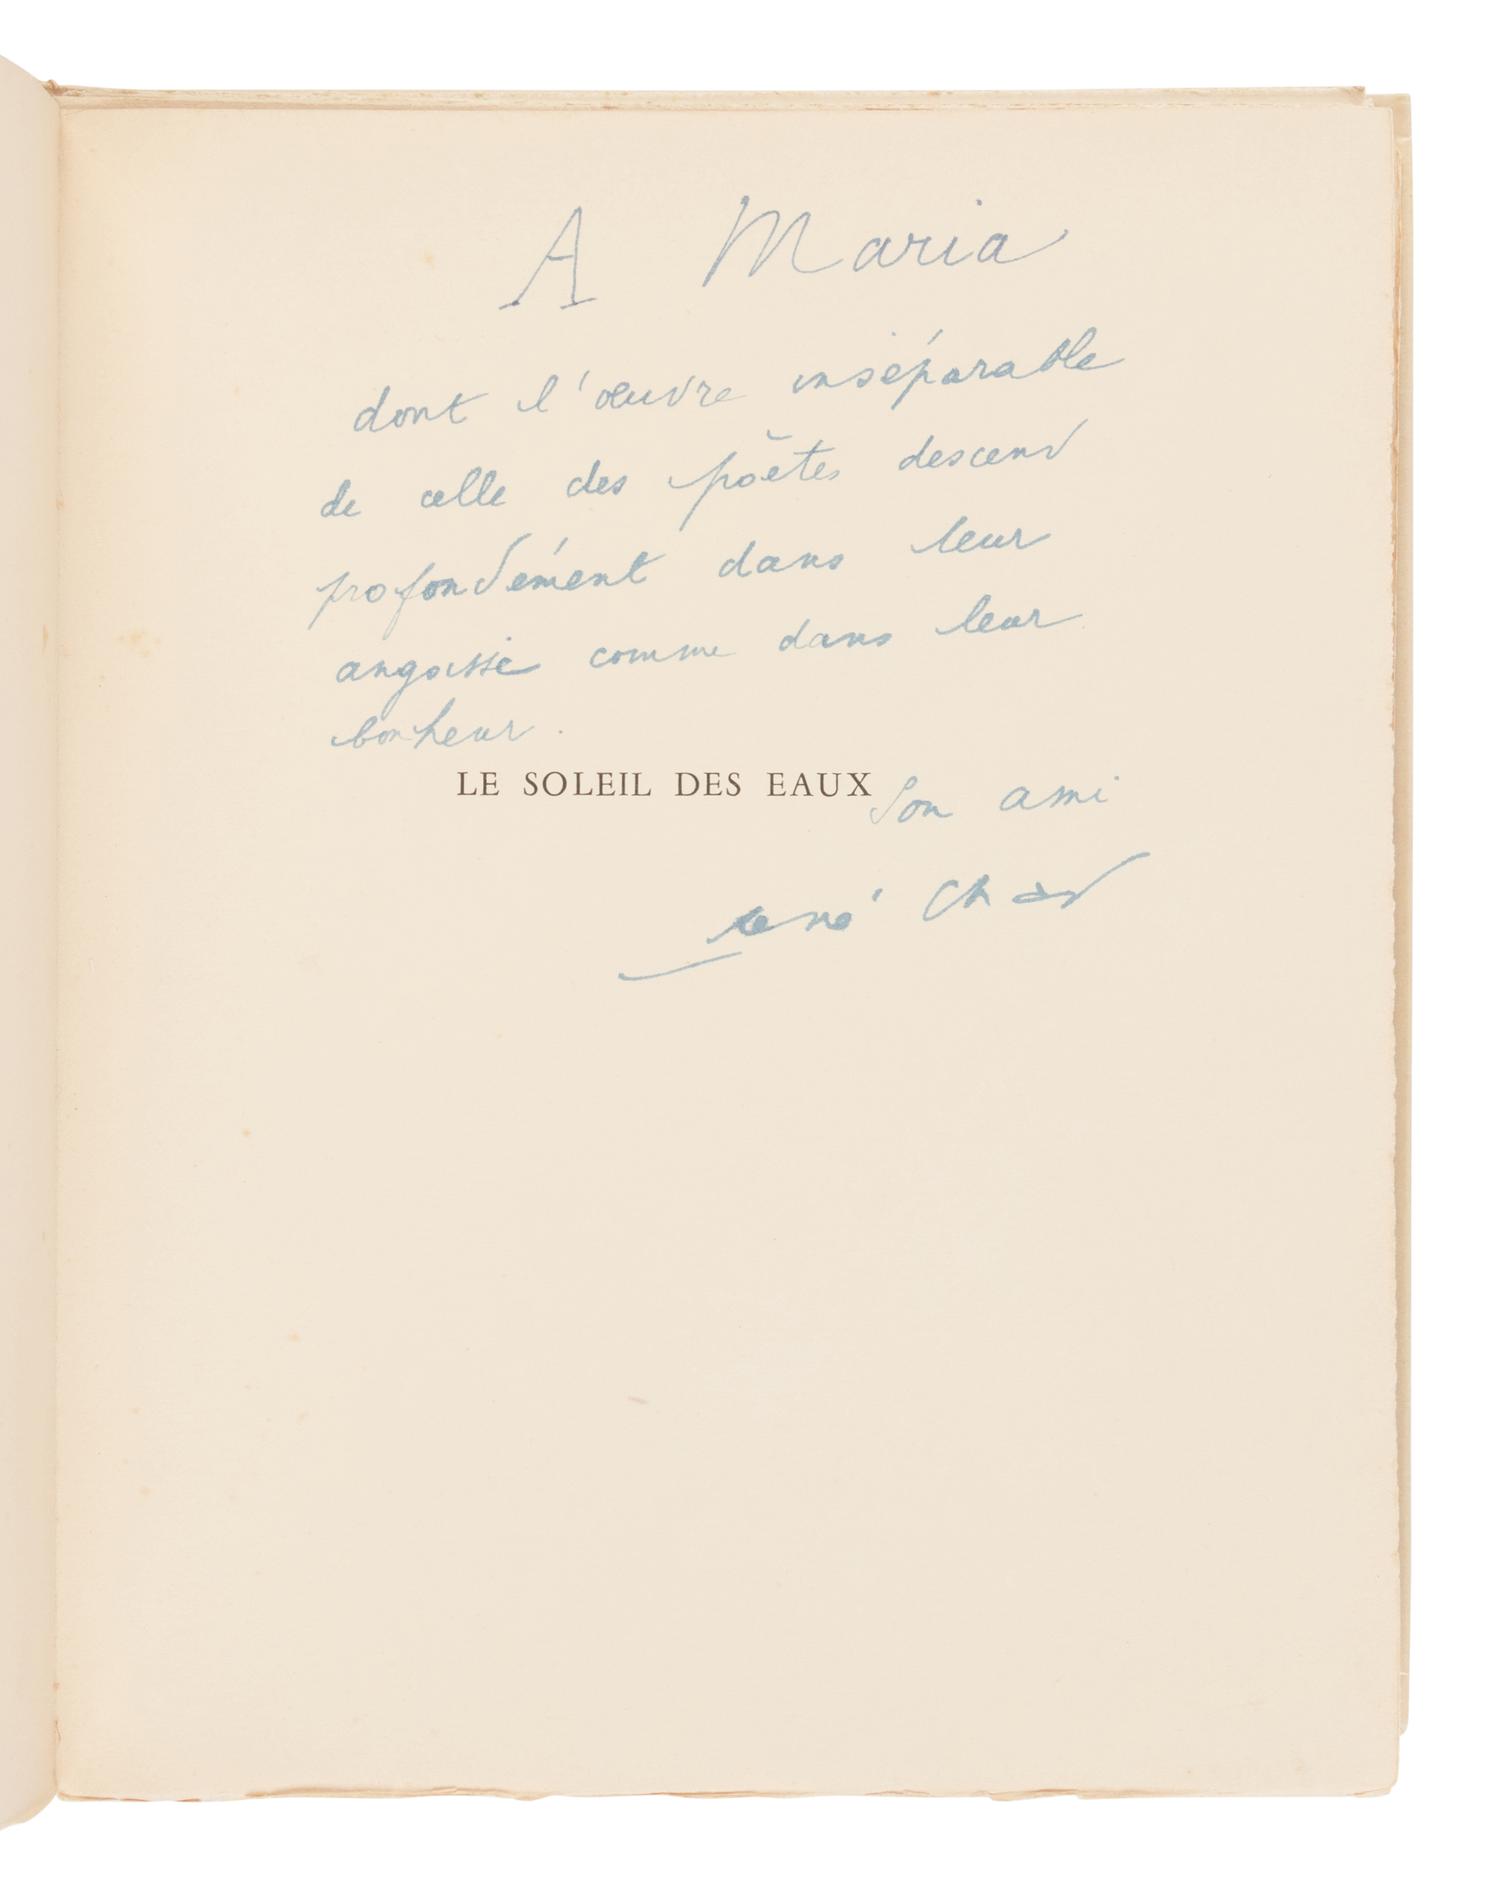 A Maria
dont l'œuvre inséparable
de celle des poètes descend
profondément dans leur
angoisse comme dans leur
bonheur.
LE SOLEIL DES EAUX
Son ami
René Char